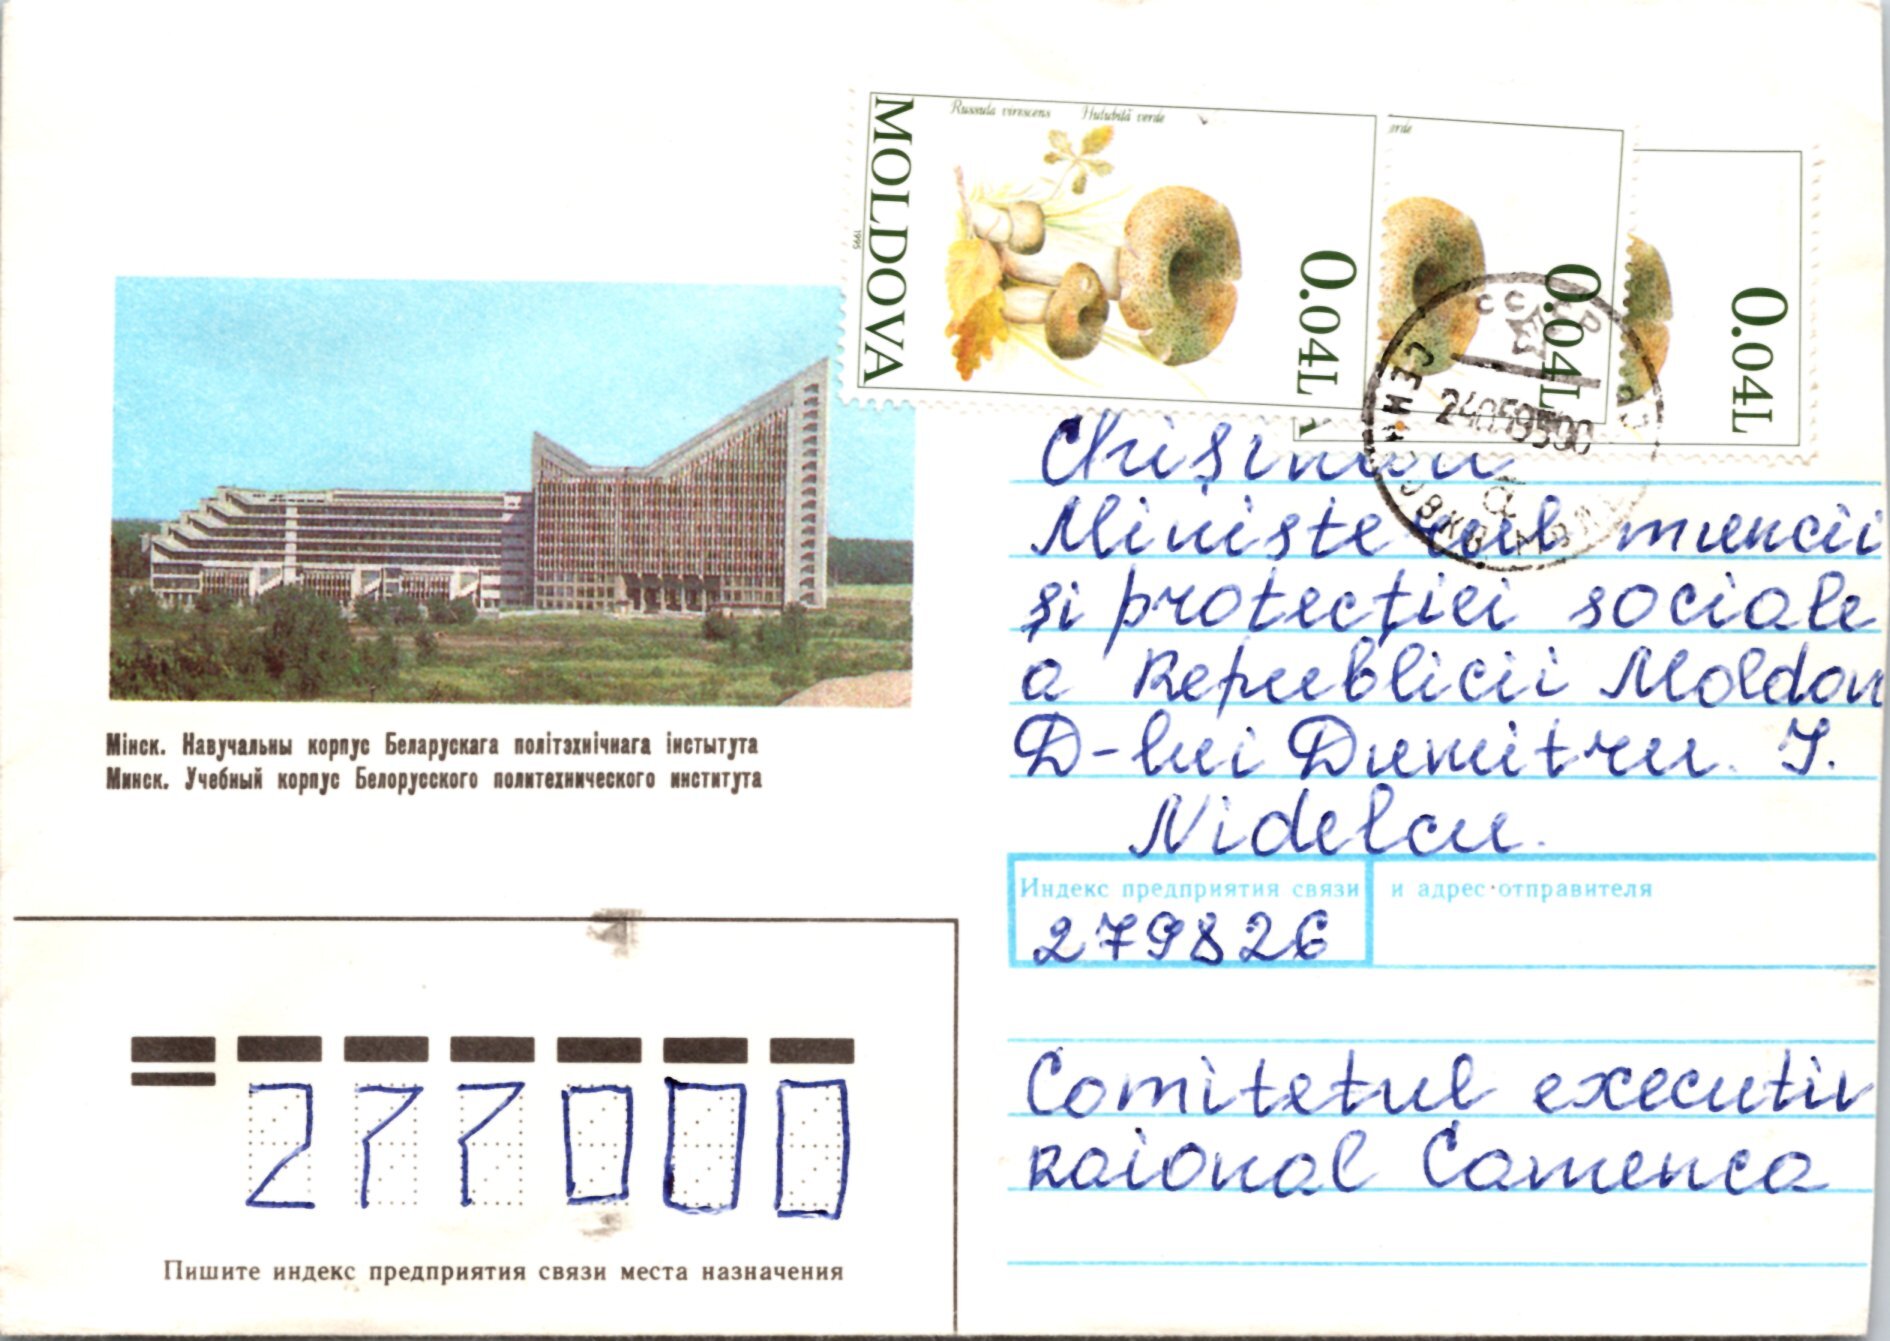 MOLDOVA
1995
Russula virescens Hulubiță verde
0.04L
0.04L
0.04L
СССР
24059500
Chișinău
Ministerul muncii
și protecției sociale
a Republicii Moldov
D-lui Dumitru. I.
Nidelcu.
Мінск. Навучальны корпус Беларускага політэхнічнага інстытута
Минск. Учебный корпус Белорусского политехнического института
Индекс предприятия связи и адрес отправителя
279826
Comitetul executiv
Raional Camenca
277000
Пишите индекс предприятия связи места назначения